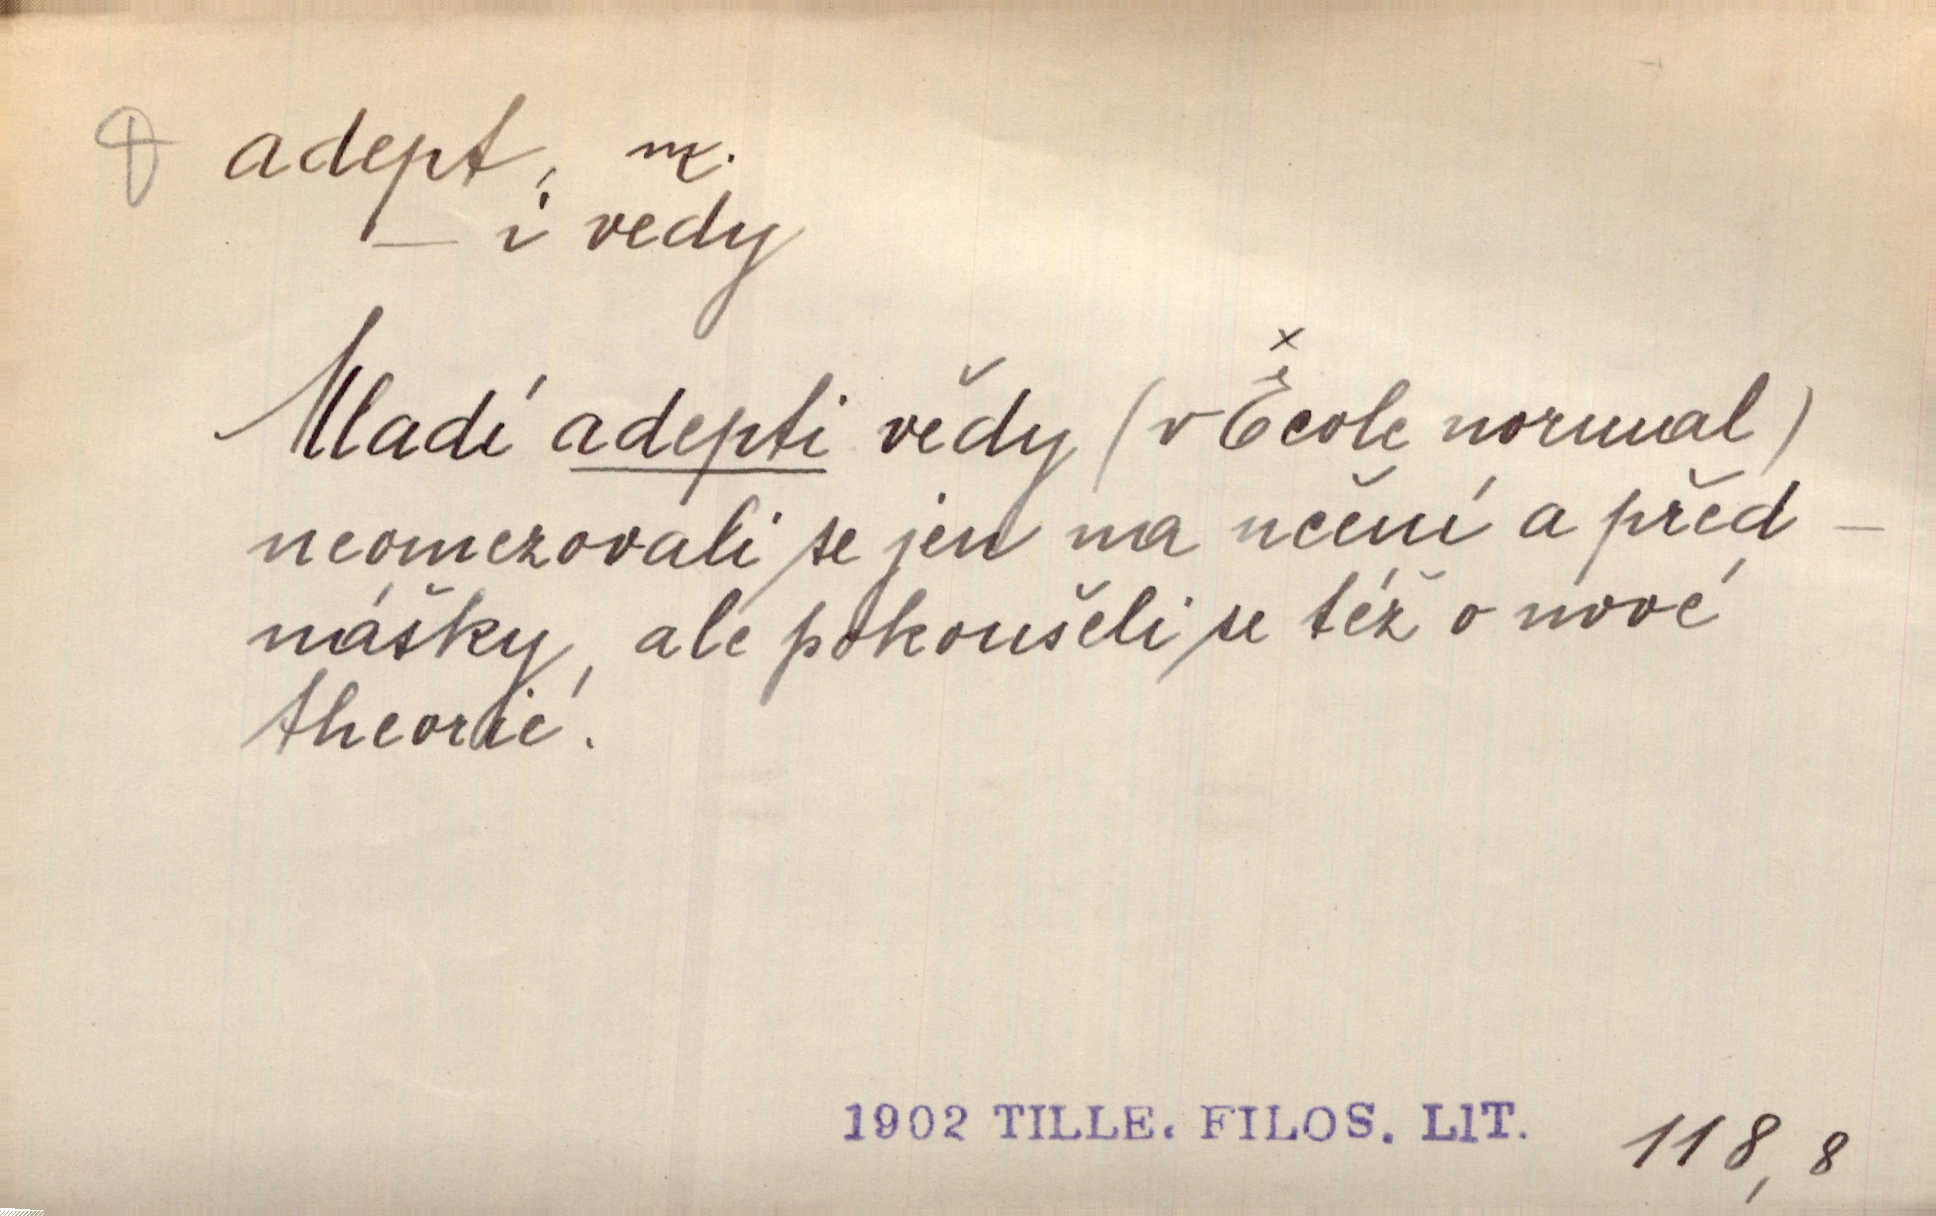 adept, m.
— i vedy
Mladí adepti vědy (v École normal)
neomezovali se jen na učení a před-
nášky, ale pokoušeli se též o nové
theorié.
1902 TILLE. FILOS. LIT. 118,8